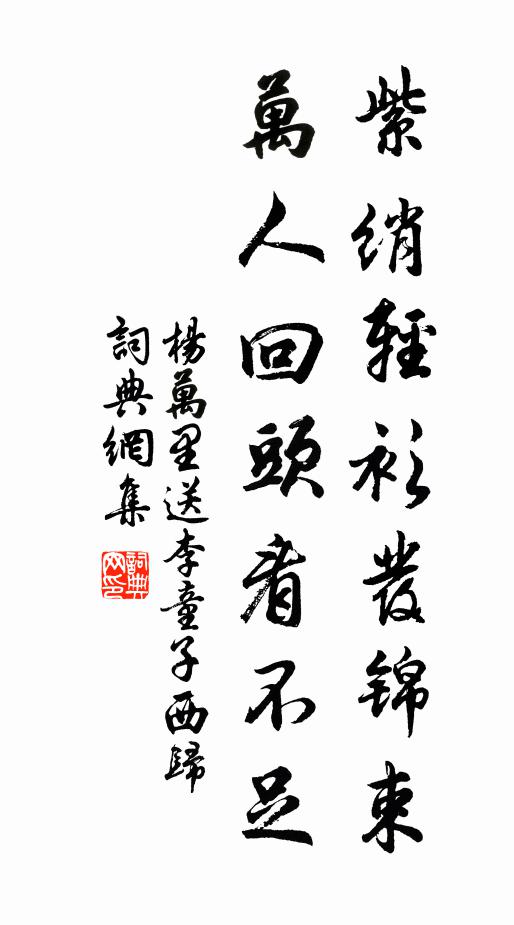 紫綃輕衫發錦束
萬人回頭看不足
楊萬里送李童子西歸
詞典網集
詞典网印